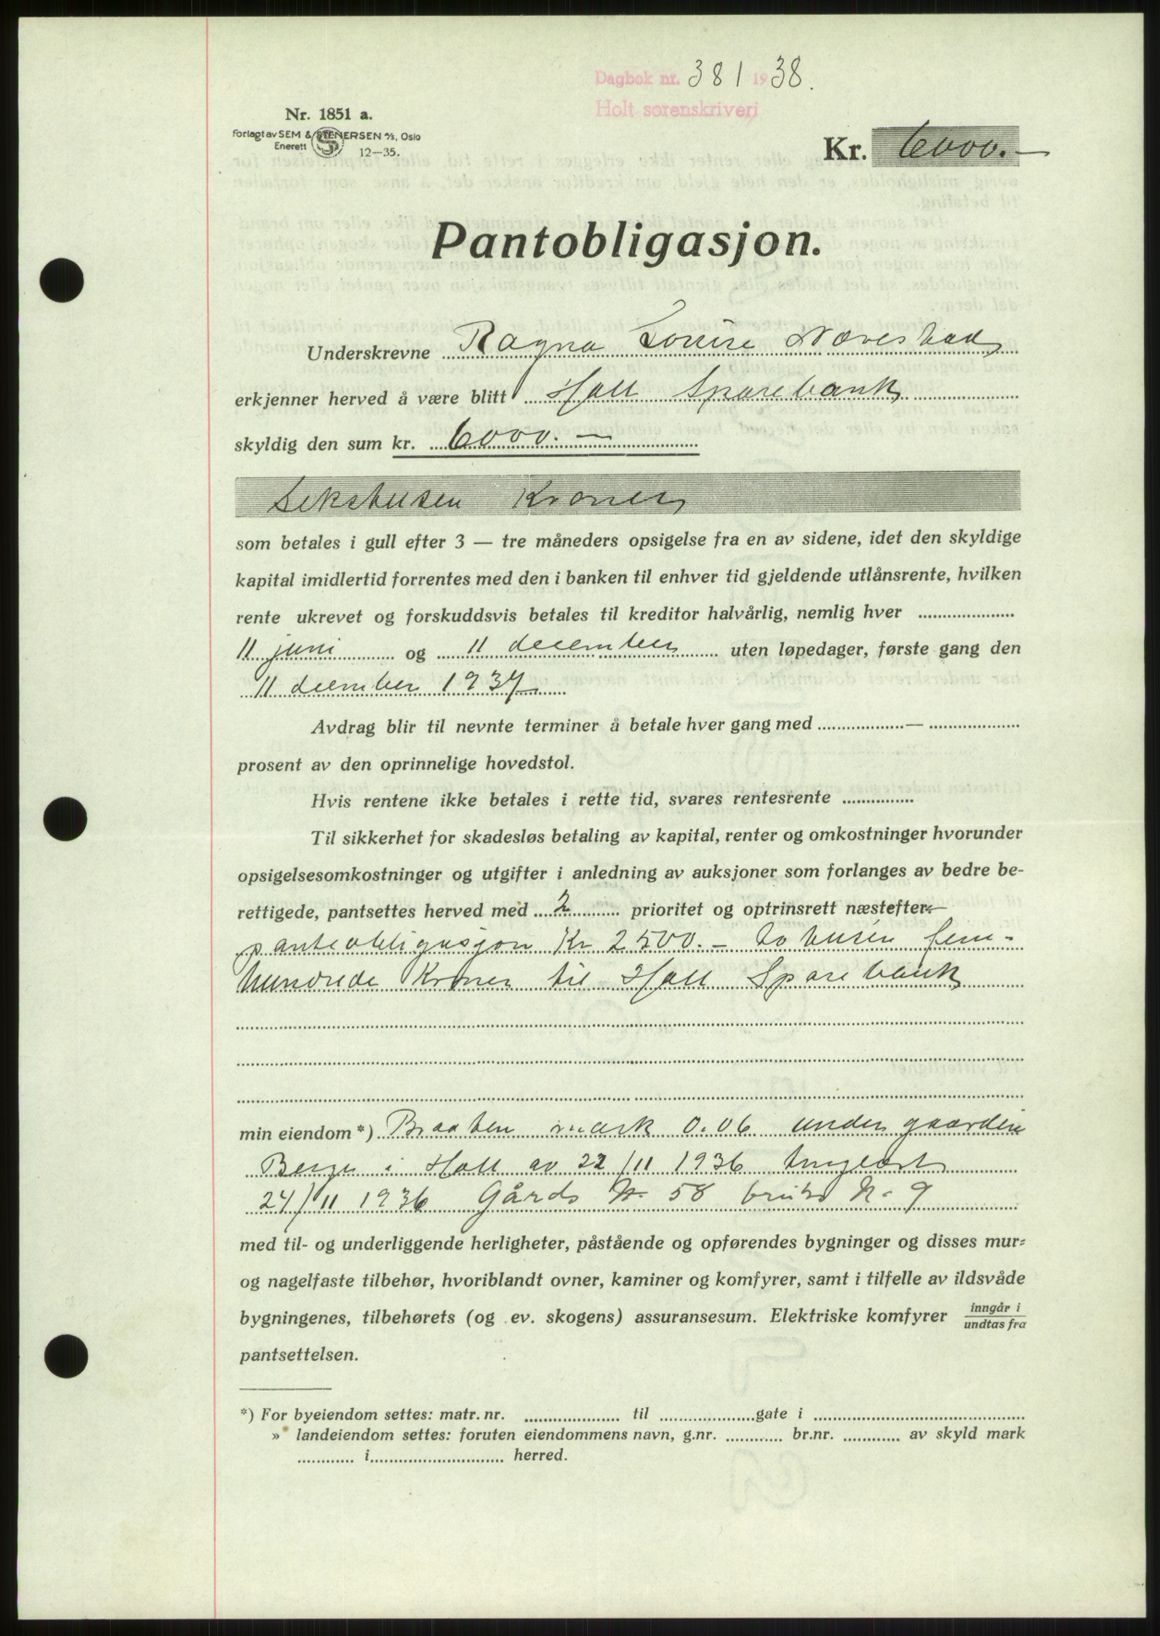 Dagbok nr. 381 1938.
Holt sorenskriveri
Nr. 1851 a.
Forlagt av SEM & STENERSEN A/S, Oslo
Enerett 12—35.
Kr. 6000.—
Pantobligasjon.
Underskrevne Ragna Louise Nævestad
erkjenner herved å være blitt Holt Sparebank
skyldig den sum kr. 6000.—
Sekstusen Kroner
som betales i gull efter 3 — tre måneders opsigelse fra en av sidene, idet den skyldige
kapital imidlertid forrentes med den i banken til enhver tid gjeldende utlånsrente, hvilken
rente ukrevet og forskuddsvis betales til kreditor halvårlig, nemlig hver ...................
11 juni og 11 december uten løpedager, første gang den
11 december 1937
Avdrag blir til nevnte terminer å betale hver gang med ..................—...................
prosent av den oprinnelige hovedstol.
Hvis rentene ikke betales i rette tid, svares rentesrente ...............
Til sikkerhet for skadesløs betaling av kapital, renter og omkostninger hvorunder
opsigelsesomkostninger og utgifter i anledning av auksjoner som forlanges av bedre be-
rettigede, pantsettes herved med 2 prioritet og optrinsrett næstefter:
panteobligasjon Kr 2500.— to tusen fem-
hundrede Kroner til Holt Sparebank
min eiendom *) Braaten mark 0.06 under gaarden
Berge i Holt av 22/11 1936 tinglæst
24/11 1936 Gårds No 58 bruks No 9
med til- og underliggende herligheter, påstående og opførendes bygninger og disses mur-
og nagelfaste tilbehør, hvoriblandt ovner, kaminer og komfyrer, samt i tilfelle av ildsvåde
bygningenes, tilbehørets (og ev. skogens) assuransesum. Elektriske komfyrer inngår i / undtas fra
pantsettelsen.
*) For byeiendom settes: matr. nr. ................... til ...................gate i ..........................................
» landeiendom settes: foruten eiendommens navn, g.nr. ............ br.nr. ............ av skyld mark
............ i........................... herred.